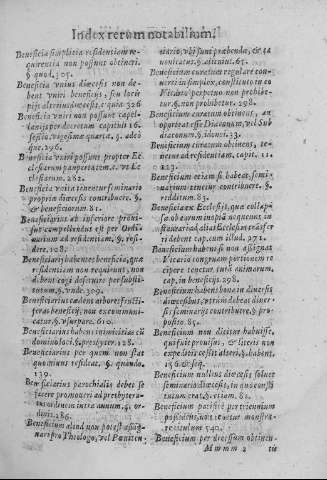 Index rerum notabilium.
Beneficia simplicia residentiam re-
quirentia non possunt obtineri.
§ quod. 305.
Beneficia unius diœcesis non de-
bent uniri beneficijs, seu locis
pijs alterius diœcesis, & quia 326
Beneficia uniri non possunt capel-
lanijs per decretum capituli 16.
sessio. vigesima quarta. §. adeò
que. 296.
Beneficia uniri possunt propter Ec
clesiarum paupertatem. & ut Ec
clesiarum. 282.
Beneficia vnita tenentur seminario
propria diœcesis contribuere. §
& beneficiatum 81.
Beneficiarius ab inferiore proui-
sus compellendus est per Ordi-
narium ad residentiam. §. resi-
dere. 108.
Beneficiarij habentes beneficia, quæ
residentiam non requirunt, non
debent cogi deseruire per substi-
tutum. §. vnde. 309.
Beneficiarius cadens arbores fructi-
feras beneficij, non excommuni-
catur. §. vsurpare. 610.
Beneficiarius habens inimicitias cũ
domino loci. §. presbyter. 128.
Beneficiarius per quem non stat
quominus resideat. §. quando.
139.
Beneficiarius parochialis debet se
facere promoueri ad presbytera-
tus ordinem intra annum. §. or-
dinis. 186.
Beneficium aliud non potest assig-
nari pro Theologo, vel Pœniten-
tiario, vbi sunt præbendæ, & ca
nonicatus. §. alienius. 67.
Beneficium curatum regulare con-
uerti in simplex, constituto in eo
Vicario perpetuo non prohibe-
tur. §. non prohibetur. 298.
Beneficium curatum obtinens, an
oporteat esse Diaconum, vel Sub
diaconum. §. idonei. 33.
Beneficium curatum obtinens, te-
netur ad residentiam. capit. 11.
123.
Beneficium etiam si habeat, semi-
nario tenetur contribuere. §.
redditum. 83.
Beneficium Ecclesiæ, quæ collap-
sa ob earum inopia nequeunt in-
staurari, ad alias Ecclesias trãsfer
ri debent cap. cum illud. 97.
Beneficium habens si non alat
Vicario congruam portionem re
cipere tenetur curã animarum.
cap. in beneficijs. 298.
Beneficium habens bona in diuersis
diœcesibus, vtrum debeat diuer-
sis seminarijs contribuere. § pro-
posito. 85.
Beneficium non dicitur habuisse,
qui fuit prouisus, & literis non
expeditis cessit alteri. §. habent.
156. & seq.
Beneficium nullius diœcesis soluet
seminario diœcesis, in quo consti
tutum erat. §. etiam 81.
Beneficium pacificè per triennium
possidens, non vexatur. § moni-
toriculum 340.
Beneficium per decessum obtinen-
Mmmm 2 tis